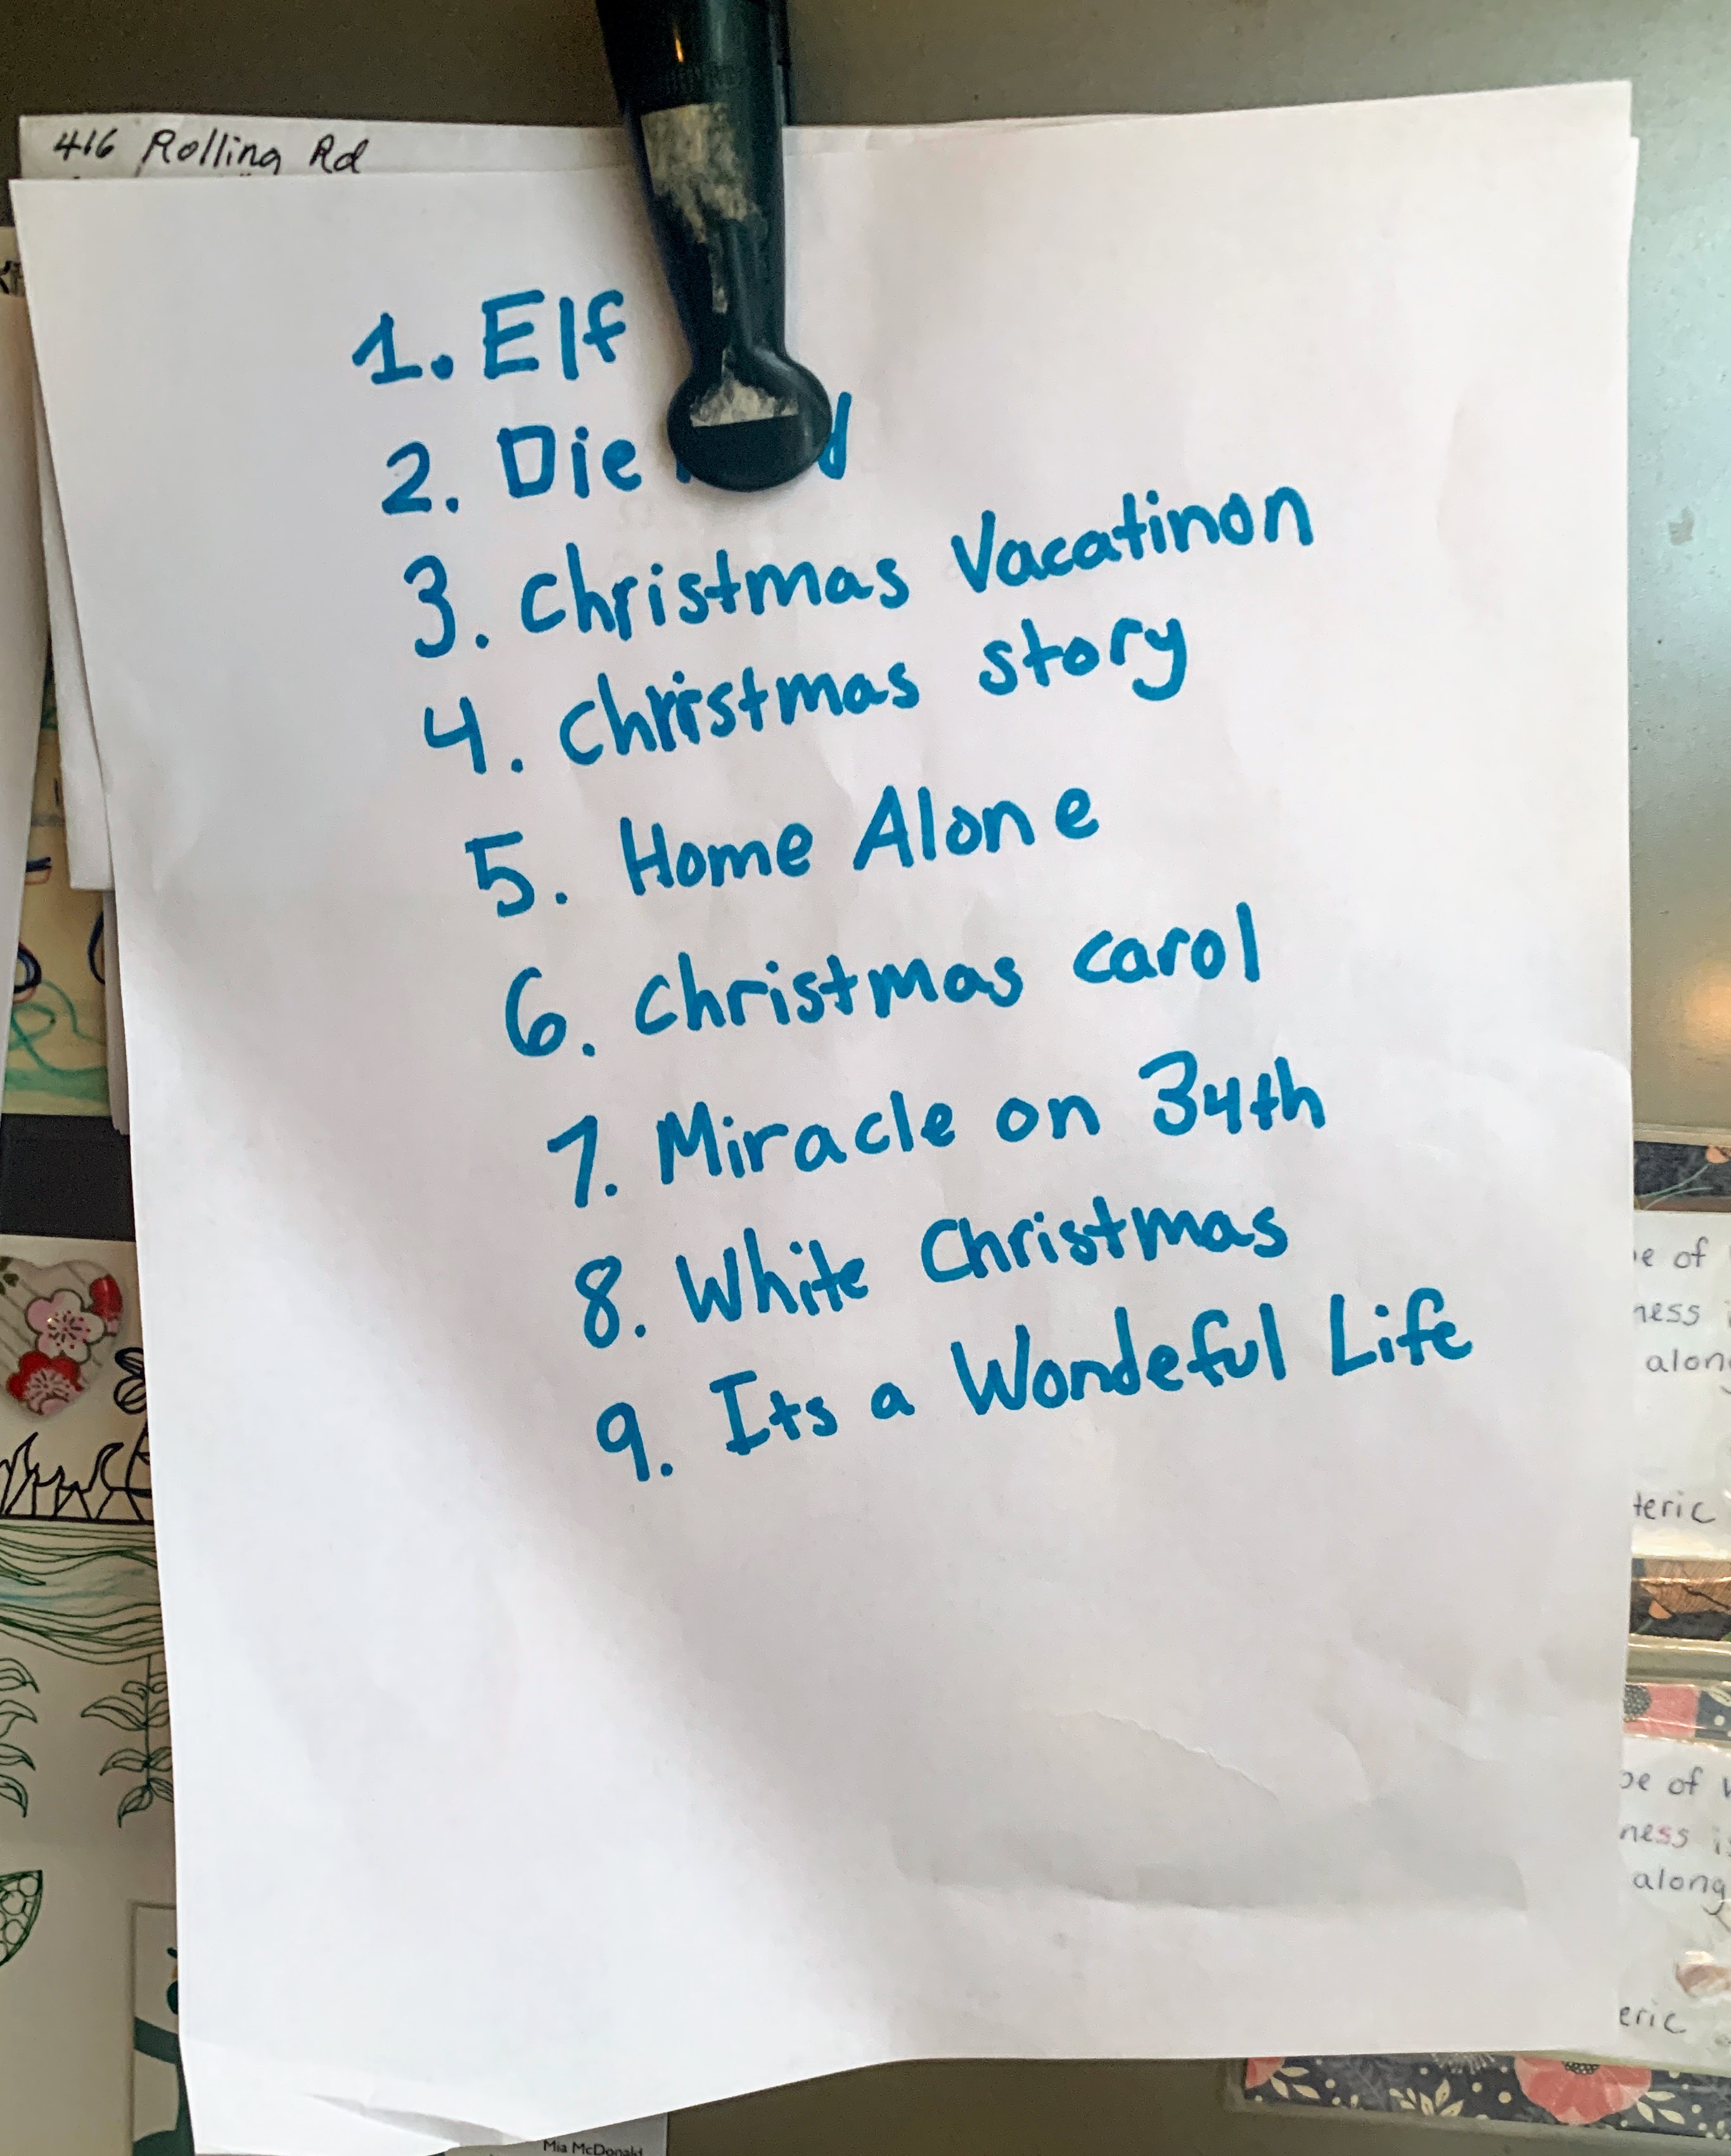 416 Rolling Rd
1. Elf
2. Die
3. Christmas Vacatinon
4. Christmas story
5. Home Alone
6. Christmas carol
7. Miracle on 34th
8. White Christmas
9. Its a Wondeful Life
e of
ness
alon
teric
pe of
ness is
along
eric
Mia McDonald